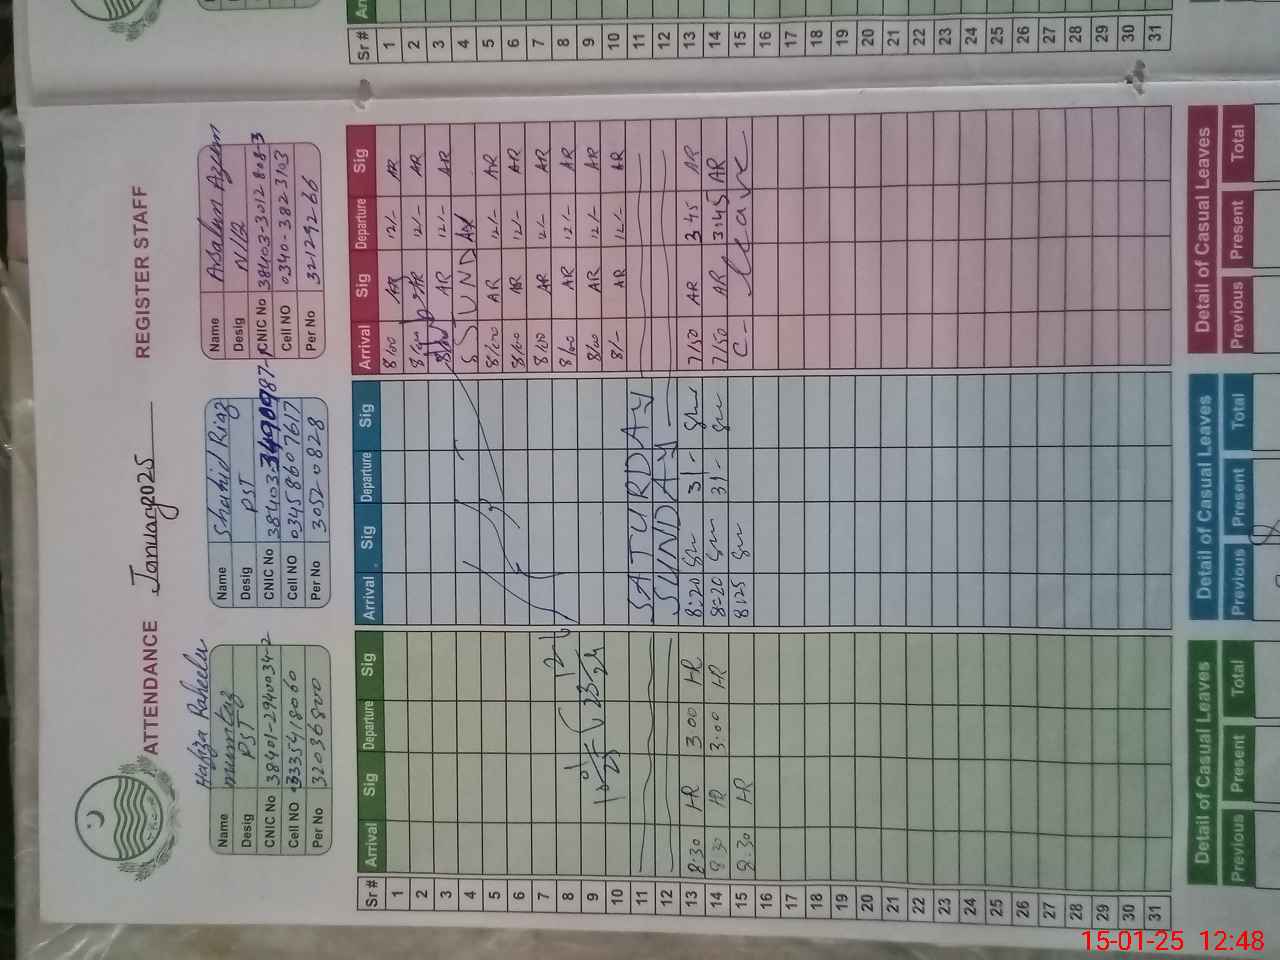 ATTENDANCE January 2025 REGISTER STAFF
Name Hafiza Raheela mumtaz
Desig PST
CNIC No 38401-2940034-2
Cell NO 03335418060
Per No 32036800
Name Shahid Riaz
Desig PST
CNIC No 38403
Cell NO 03458607617
Per No 30520828
Name Azeem
Desig N/12
CNIC No 38403-3012808-3
Cell NO 0340-3823103
Per No 32129266
Sr # Arrival Sig Departure Sig Arrival Sig Departure Sig Arrival Sig Departure Sig
1 8/00 AR 12/- AR
2 8/00 AR 12/- AR
3 AR 12/- AR
4 SUNDAY
5 8/00 AR 12/- AR
6 8/00 AR 12/- AR
7 8/00 AR 12/- AR
8 8/00 AR 12/- AR
9 8/00 AR 12/- AR
10 8/- AR 12/- AR
11 SATURDAY
12 SUNDAY
13 8:30 HR 3:00 HR 8:20 31- 7/50 AR 3:45 AR
14 8:30 HR 3:00 HR 8:20 31- 7/50 AR 3:45 AR
15 8:30 HR 8:25 C- leave
16
17
18
19
20
21
22
23
24
25
26
27
28
29
30
31
Detail of Casual Leaves Detail of Casual Leaves Detail of Casual Leaves
Previous Present Total Previous Present Total Previous Present Total
Sr #
1
2
3
4
5
6
7
8
9
10
11
12
13
14
15
16
17
18
19
20
21
22
23
24
25
26
27
28
29
30
31
15-01-25 12:48